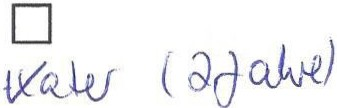 Kater (2 Jahre)